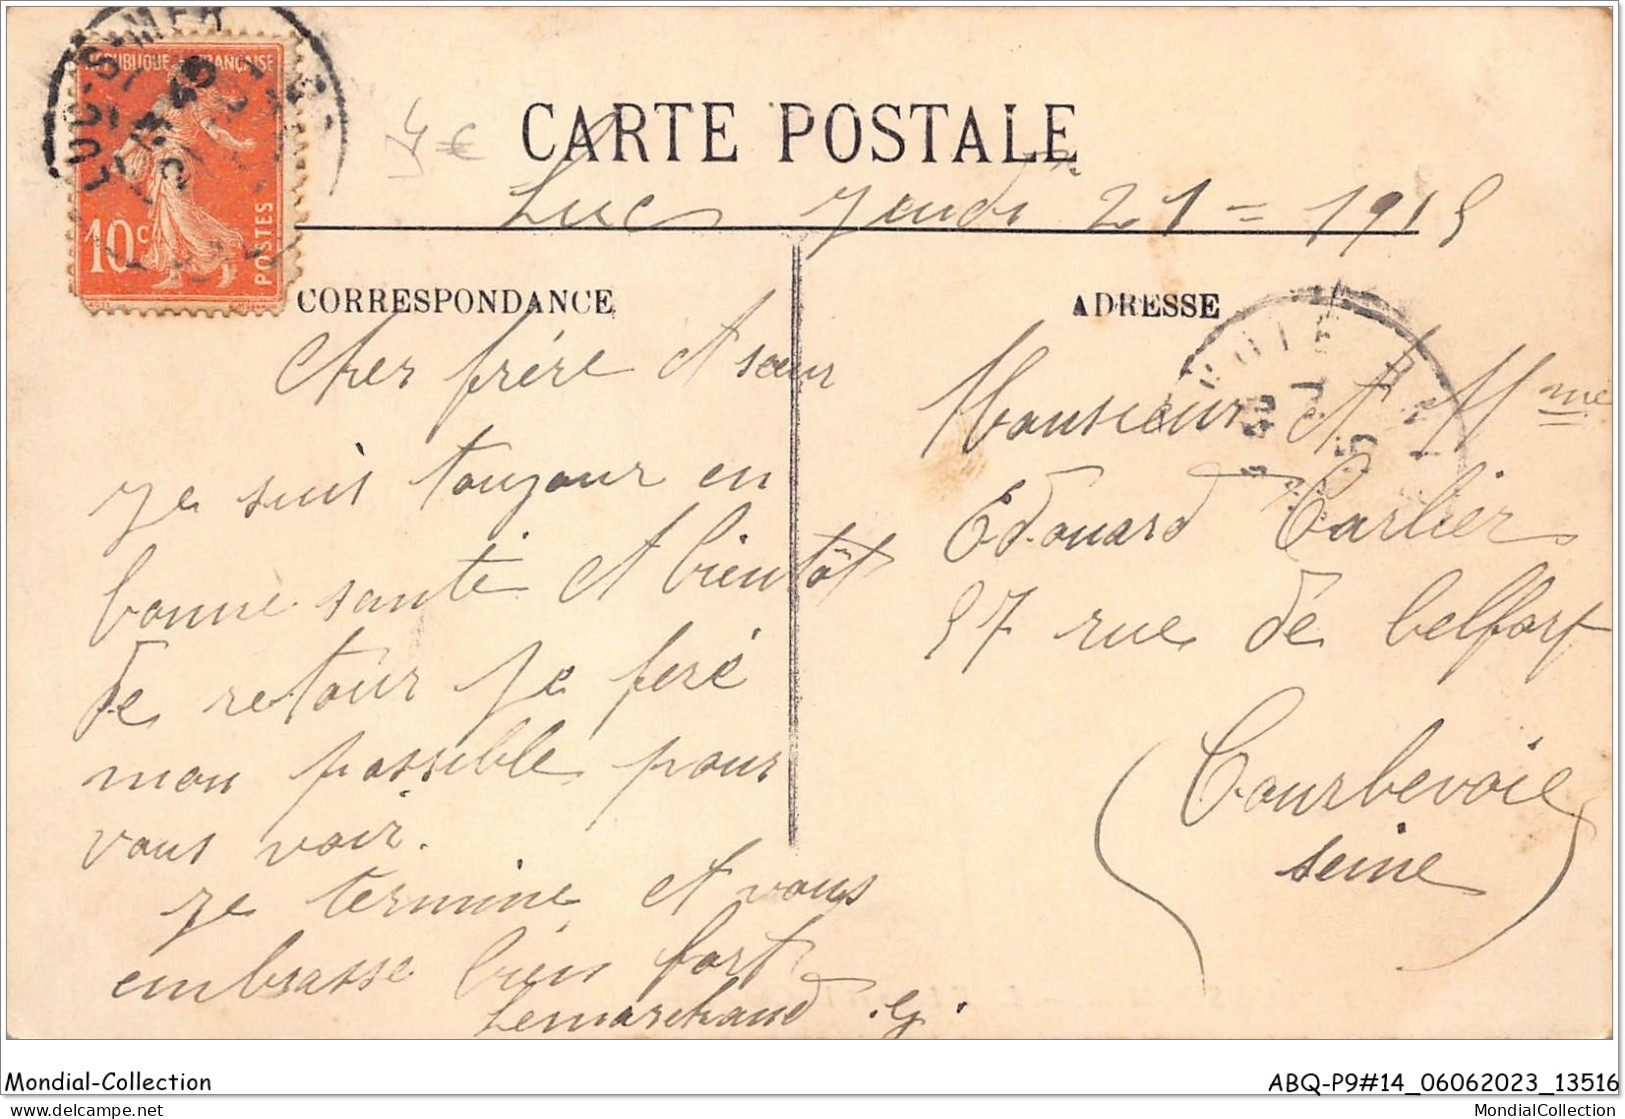 LUC-S-MER
RÉPUBLIQUE FRANÇAISE
10c
POSTES
4€
CARTE POSTALE
Luc Jeudi 21 = 1915
CORRESPONDANCE
Cher frère et sœur
Je suis toujour en
bonne santé et bientôt
de retour je feré
mon possible pour
vous voir.
Je termine et vous
embrasse bien fort
Lemarchand .G.
ADRESSE
Monsieur et Mme
Edouard Carlier
57 rue de belfort
(Courbevoie
seine)
Mondial-Collection
ABQ-P9#14_06062023_13516
delcampe.net
MondialCollection